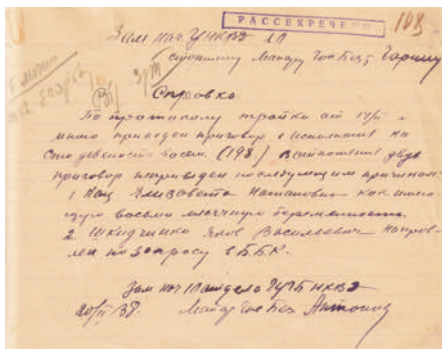 РАССЕКРЕЧЕНО
108
Зам нач УНКВД ЛО
старшему Майору ГосБез. Гарину
Справка
По протоколу тройки от
мною приведен приговор в исполнение на
Сто девяносто восем. (198.) В отношении двух
приговор неприведен последующим причинам:
1 Кац Элизовета Натановна как имею
щую восьми месячную беременность.
2 Шкидченко Яков Васильевич направ-
лен по запросу в ББК.
Зам нач 1 отдела ГУГБ НКВД
20/II 38. Майор ГосБез Антонов